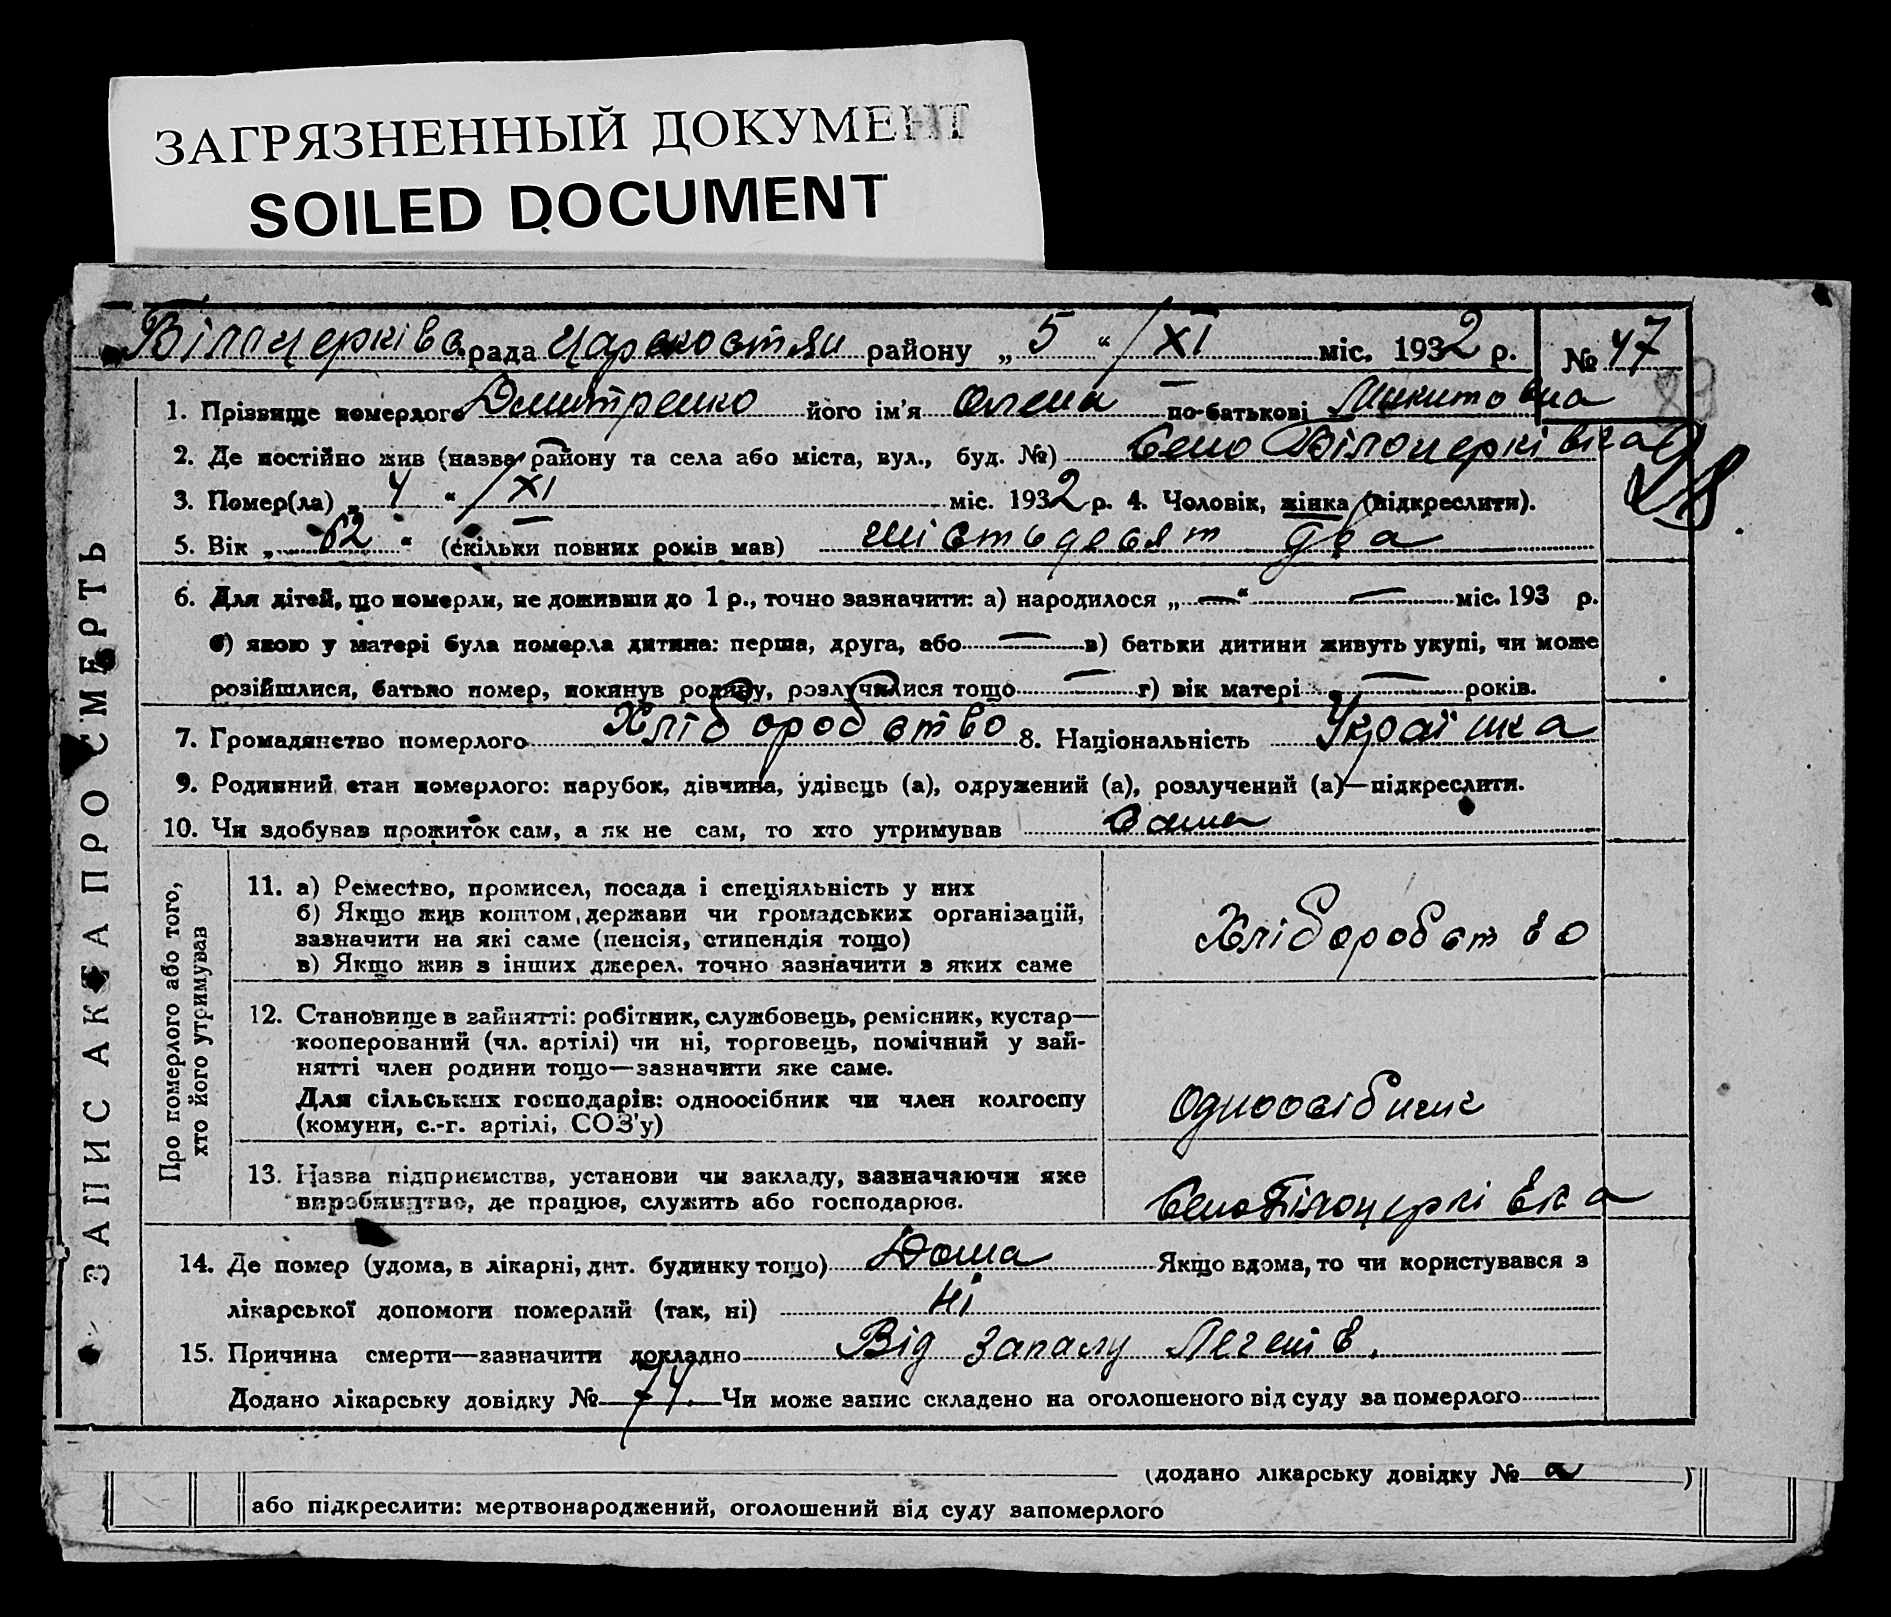 ЗАГРЯЗНЕННЫЙ ДОКУМЕНТ
SOILED DOCUMENT
Білоцерківс. рада району „ 5 “ /XI міс. 1932 р. № 47
1. Прізвище померлого Дмитренко його ім'я Олена по-батькові Микитовна
2. Де постійно жив (назва району та села або міста, вул., буд. №) Село Білоцерківка
3. Помер(ла) „ 4 “ /XI міс. 1932 р. 4. Чоловік, жінка (підкреслити).
5. Вік „ 62 “ (скільки повних років мав) шістьдесят два
6. Для дітей, що померли, не доживши до 1 р., точно зазначити: а) народилося „ — “ — міс. 193 р.
б) якою у матері була померла дитина: перша, друга, або — в) батьки дитини живуть укупі, чи може
розійшлися, батько помер, покинув родину, розлучилися тощо — г) вік матері — років.
7. Громадянство померлого Хліборобство 8. Національність Українка
9. Родинний стан померлого: парубок, дівчина, удівець (а), одружений (а), розлучений (а)—підкреслити.
10. Чи здобував прожиток сам, а як не сам, то хто утримував Сама
ЗАПИС АКТА ПРО СМЕРТЬ
Про померлого або того,
хто його утримував
11. а) Ремество, промисел, посада і спеціяльність у них
б) Якщо жив коштом держави чи громадських організацій,
зазначити на які саме (пенсія, стипендія тощо)
в) Якщо жив з інших джерел, точно зазначити з яких саме
Хліборобство
12. Становище в зайнятті: робітник, службовець, ремісник, кустар—
кооперований (чл. артілі) чи ні, торговець, помічний у зай-
нятті член родини тощо—зазначити яке саме.
Для сільських господарів: одноосібник чи член колгоспу
(комуни, с.-г. артілі, СОЗ'у)
Одноосібник
13. Назва підприємства, установи чи закладу, зазначаючи яке
виробництво, де працює, служить або господарює.
Село Білоцерківка
14. Де помер (удома, в лікарні, дит. будинку тощо) Дома Якщо вдома, то чи користувався з
лікарської допомоги померлий (так, ні) Ні
15. Причина смерти—зазначити докладно Від запалу Легенів.
Додано лікарську довідку № 74. Чи може запис складено на оголошеного від суду за померлого
(додано лікарську довідку № )
або підкреслити: мертвонароджений, оголошений від суду запомерлого